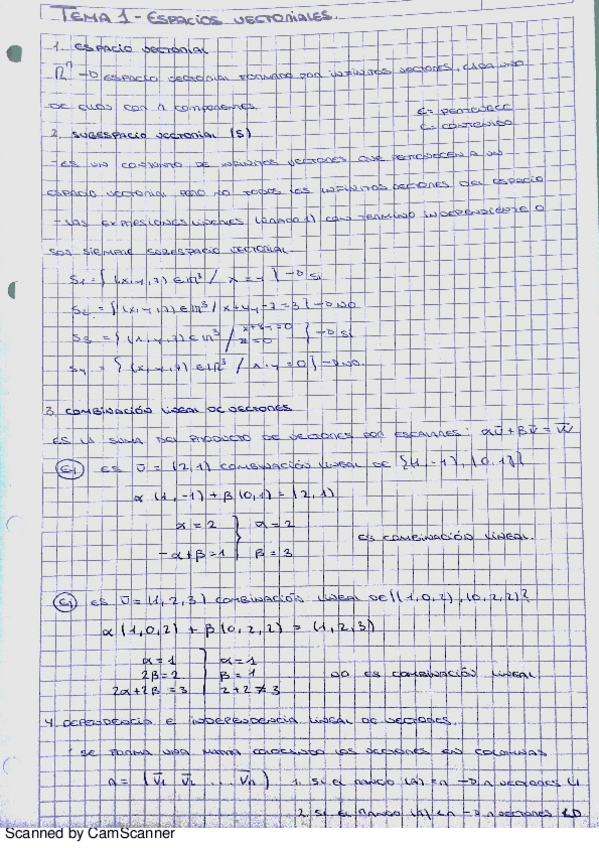 TEMA 1 - ESPACIOS VECTORIALES.
1. ESPACIO VECTORIAL
ℝⁿ → ESPACIO VECTORIAL FORMADO POR INFINITOS VECTORES, CADA UNO
DE ELLOS CON n COMPONENTES.
∈ = PERTENECE
⊂ = CONTENIDO
2. SUBESPACIO VECTORIAL (S)
- ES UN CONJUNTO DE INFINITOS VECTORES QUE PERTENECEN A UN
ESPACIO VECTORIAL PERO NO TODOS LOS INFINITOS VECTORES DEL ESPACIO
- LAS EXPRESIONES LINEALES (GRADO 1) CON TERMINO INDEPENDIENTE 0
SON SIEMPRE SUBESPACIO VECTORIAL
S₁ = { (x,y,z) ∈ ℝ³ / x = y } → SI
S₂ = { (x,y,z) ∈ ℝ³ / x+y-z=3 } → NO
S₃ = { (x,y,z) ∈ ℝ³ / =0 z=0 } → SI
S₄ = { (x,y,z) ∈ ℝ³ / x·y=0 } → NO.
3. COMBINACIÓN LINEAL DE VECTORES
ES LA SUMA DEL PRODUCTO DE VECTORES POR ESCALARES: αū + βv̄ = w̄
Ej ES ū = (2,1) COMBINACIÓN LINEAL DE {(1,-1), (0,1)}?
α (1,-1) + β (0,1) = (2,1)
α = 2 } α = 2
-α+β = 1 } β = 3
ES COMBINACIÓN LINEAL.
Ej ES ū = (1,2,3) COMBINACIÓN LINEAL DE {(1,0,2), (0,2,2)}?
α (1,0,2) + β (0,2,2) = (1,2,3)
α = 1 } α = 1
2β = 2 } β = 1
2α+2β = 3 } 2+2 ≠ 3
NO ES COMBINACIÓN LINEAL
4. DEPENDENCIA E INDEPENDENCIA LINEAL DE VECTORES.
SE FORMA UNA MATRIZ COLOCANDO LOS VECTORES EN COLUMNAS
A = (v̄₁ v̄₂ ... v̄n) 1. SI EL RANGO (A) = n → n VECTORES LI
2. SI EL RANGO (A) < n → n VECTORES LD
Scanned by CamScanner